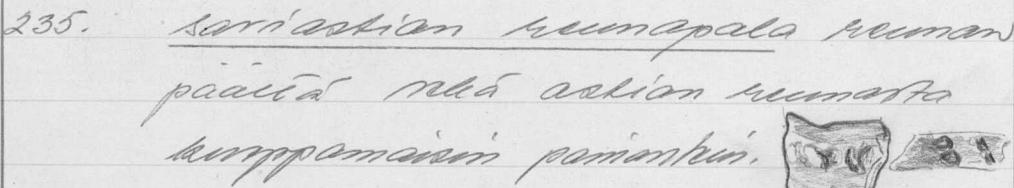 235. saviastian reunapala reunan
päältä sekä astian reunasta
kuoppamaisin painantein.